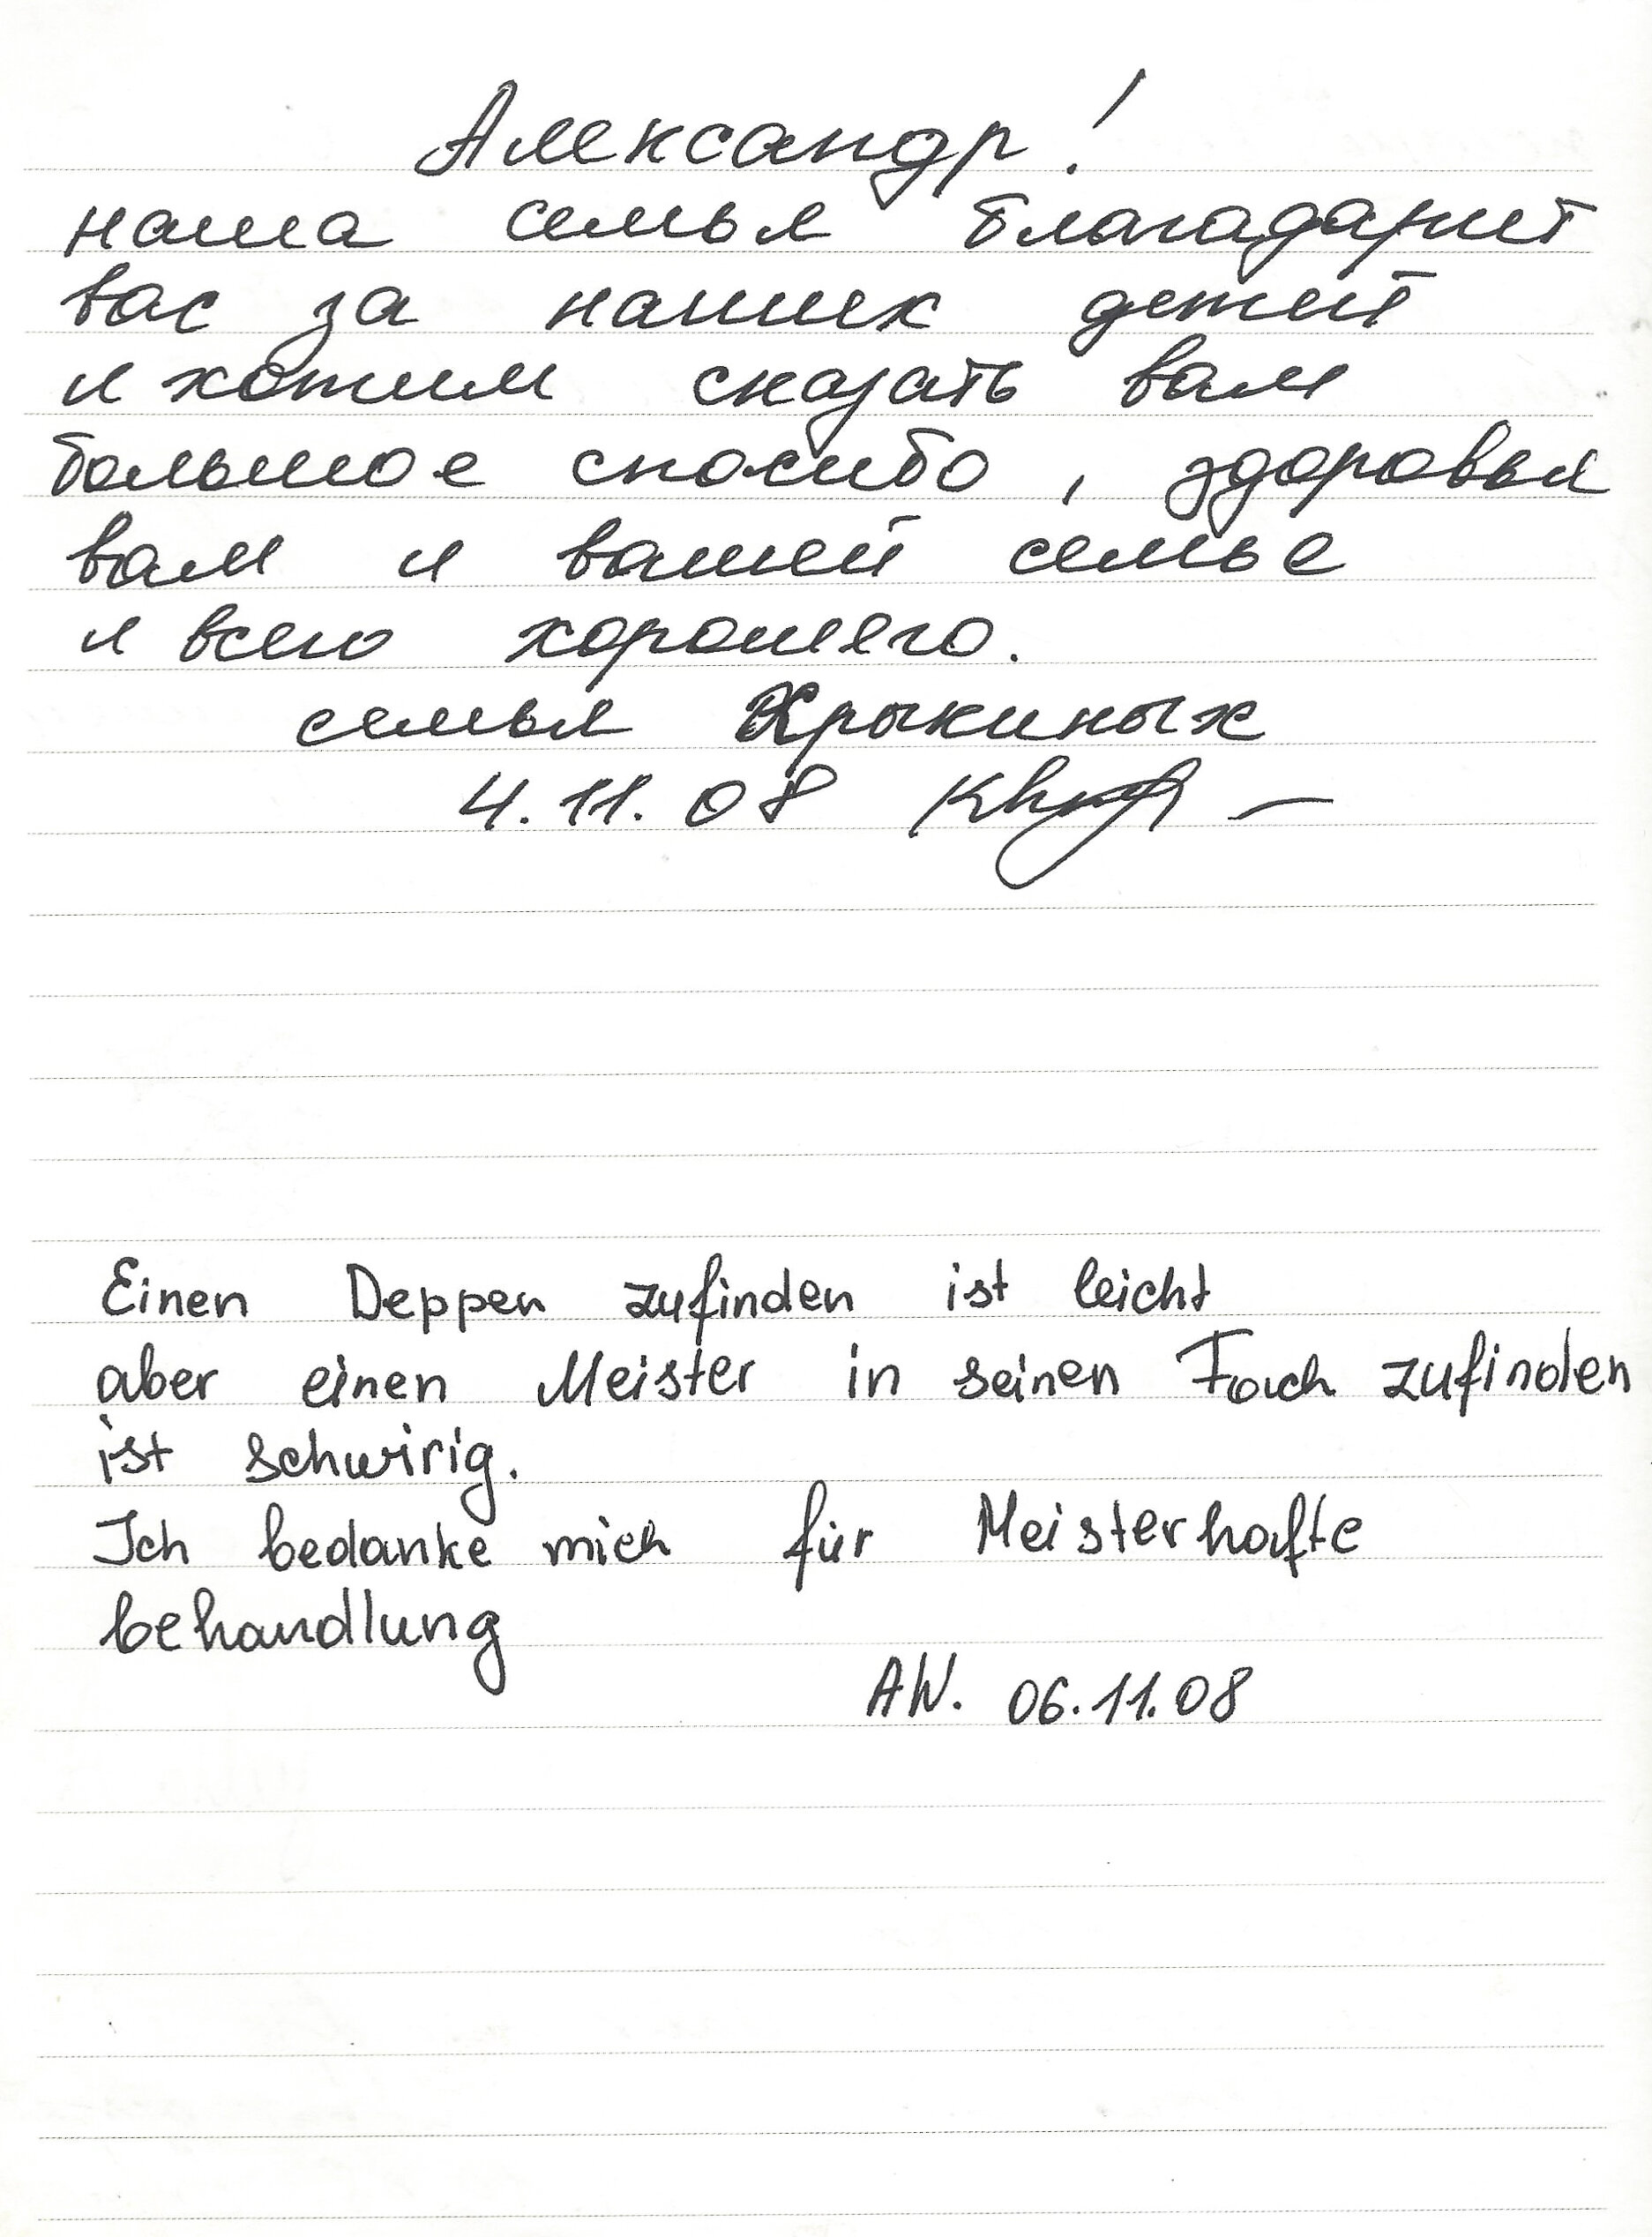 Александр!
наша семья благадарит
вас за наших детей
и хотим сказать вам
большое спасибо, здоровья
вам и вашей семье
и всего хорошего.
семья Крыкиных
4.11.08
Einen Deppen zufinden ist leicht
aber einen Meister in seinen Fach zufinden
ist schwirig.
Ich bedanke mich für Meisterhafte
behandlung
AW. 06.11.08